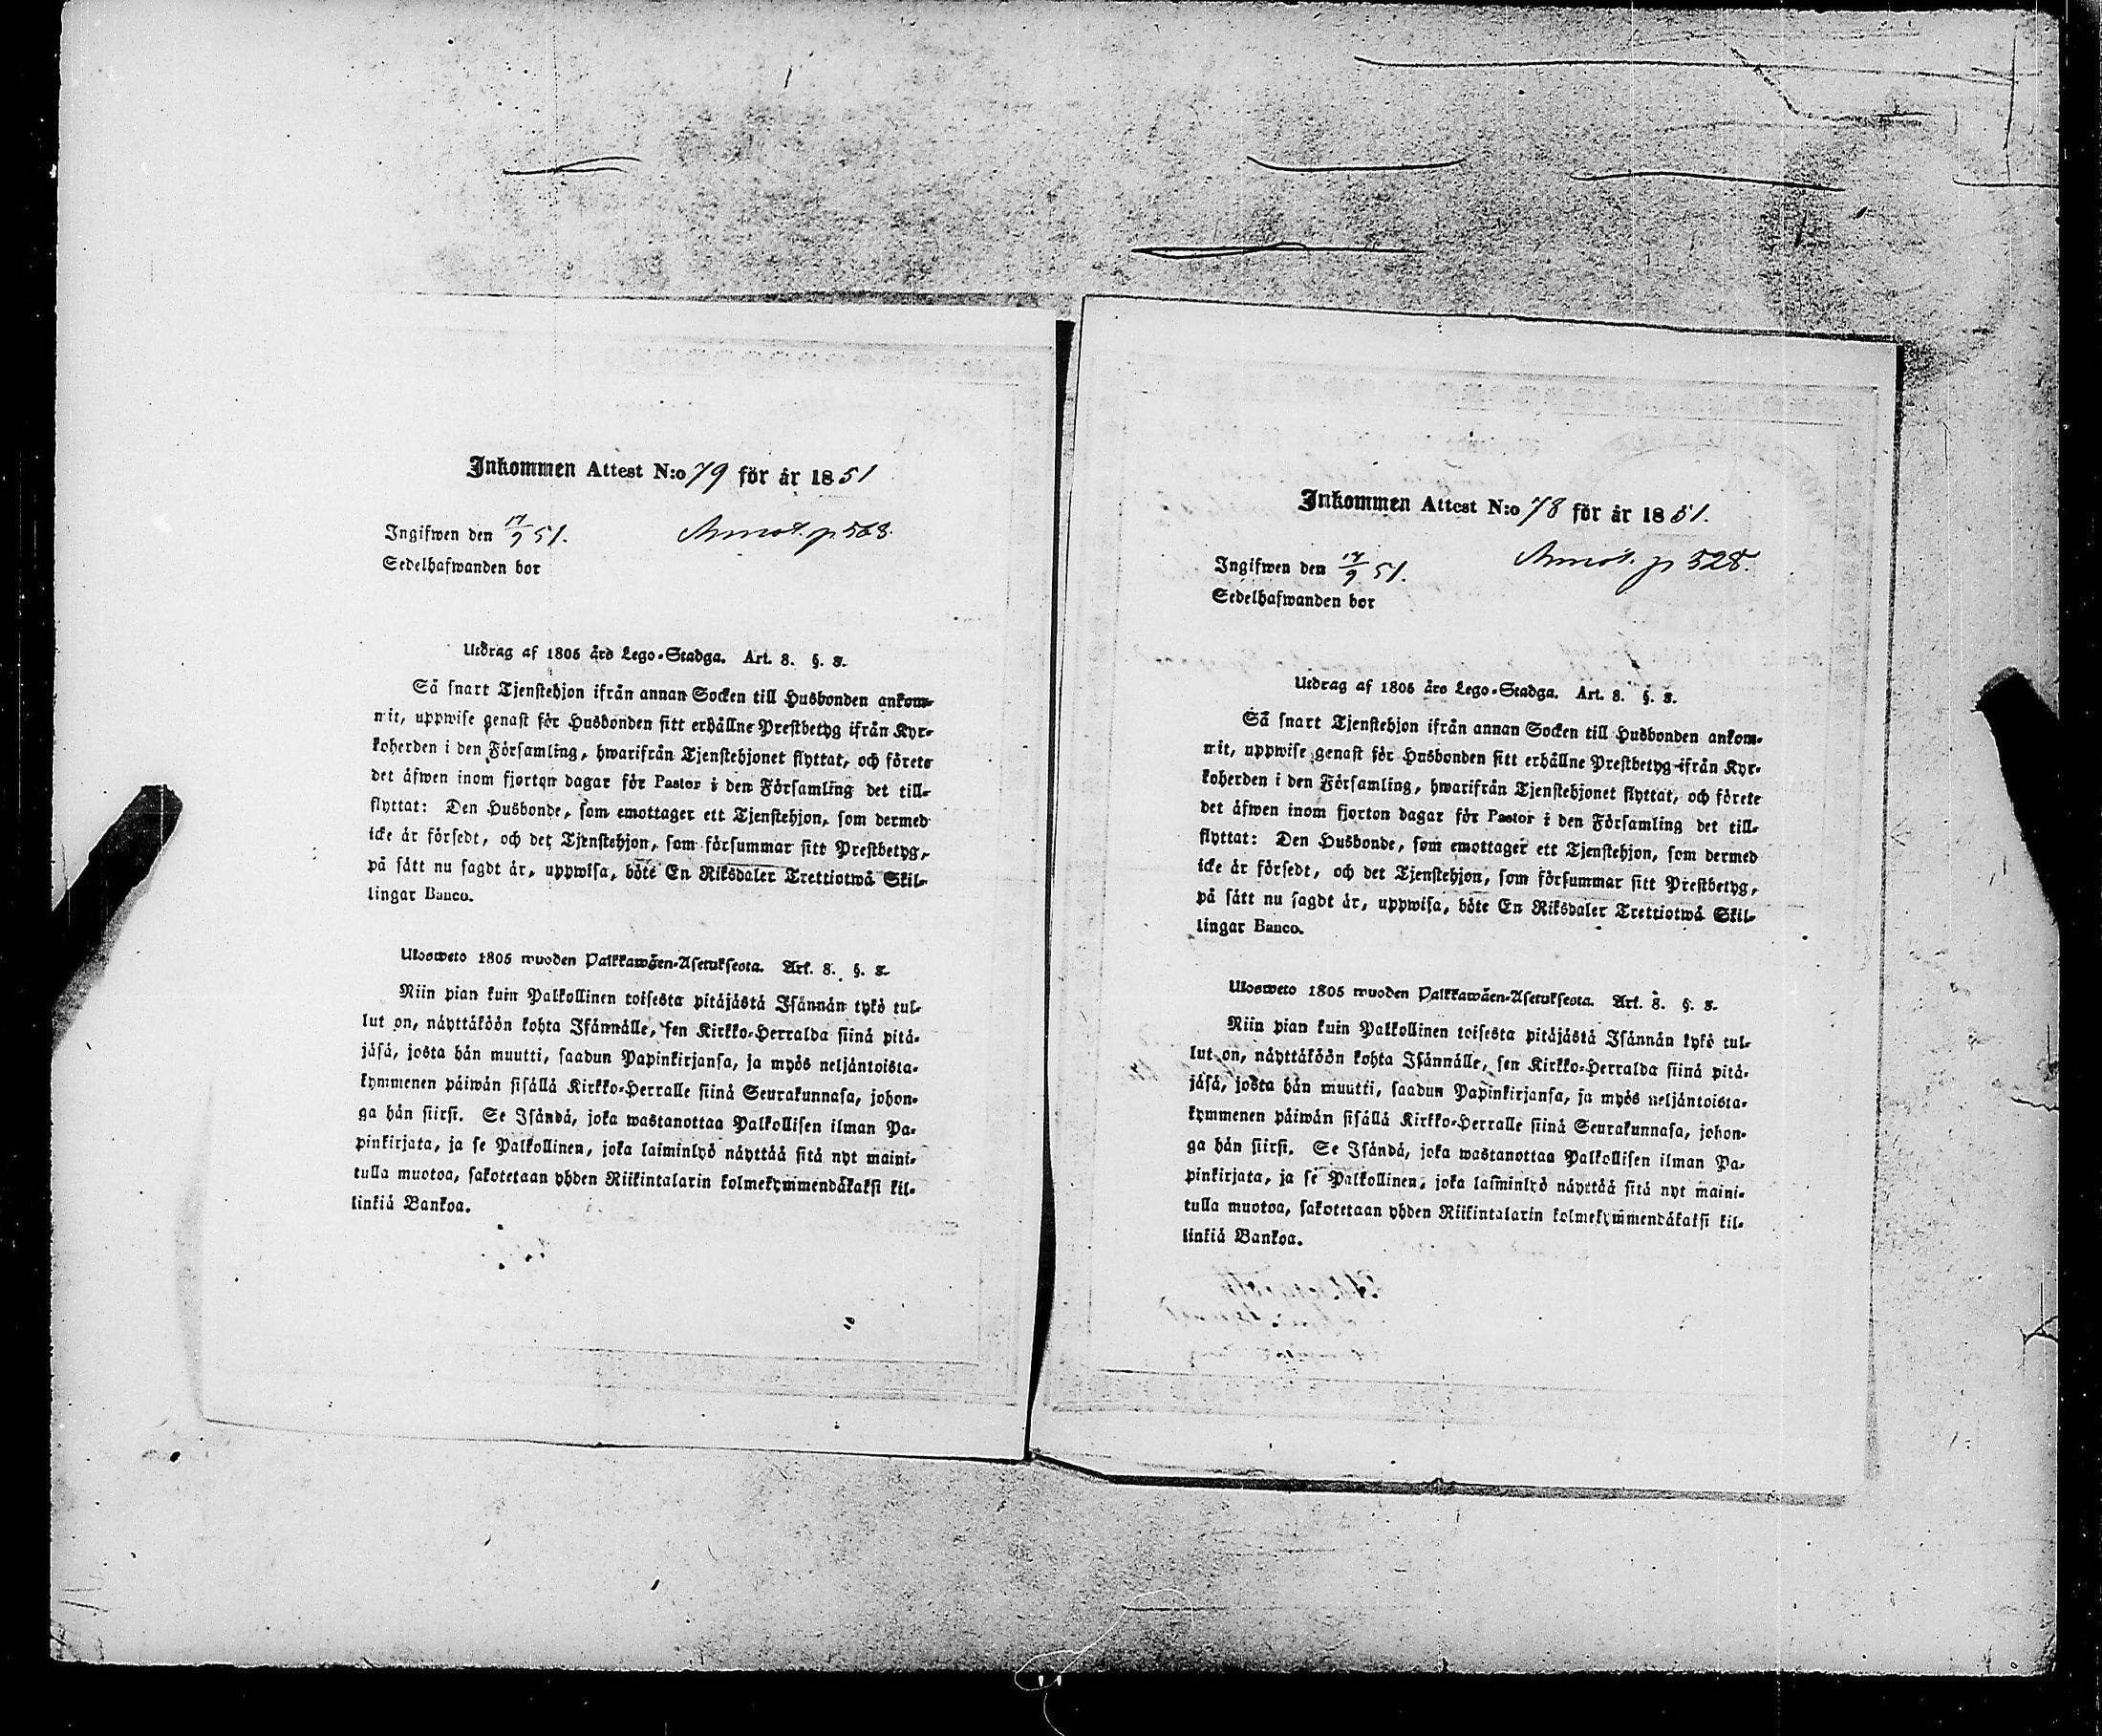 Inkommen Attest N:o 79 för år 1851
Ingifwen den 17/9 51. Annot. p 568.
Sedelhafwanden bor
Utdrag af 1805 års Lego-Stadga. Art. 8. §. 8.
Så snart Tjenstehjon ifrån annan Socken till Husbonden ankom-
mit, uppwise genast för Husbonden sitt erhållne Prestbetyg ifrån Kyr-
koherden i den Församling, hwarifrån Tjenstehjonet flyttat, och förete
det äfwen inom fjorton dagar för Pastor i den Församling det till-
flyttat: Den Husbonde, som emottager ett Tjenstehjon, som dermed
icke är försedt, och det Tjenstehjon, som försummar sitt Prestbetyg,
på sätt nu sagdt är, uppwisa, böte En Riksdaler Trettiotwå Skil-
lingar Banco.
Ulosweto 1805 wuoden Palkkawäen-Asetuksesta. Art. 8. §. 8.
Niin pian kuin Palkollinen toisesta pitäjästä Isännän tykö tul-
lut on, näyttäköön kohta Isännälle, sen Kirkko-Herralda siinä pitä-
jäsä, josta hän muutti, saadun Papinkirjansa, ja myös neljäntoista-
kymmenen päiwän sisällä Kirkko-Herralle siinä Seurakunnasa, johon-
ga hän siirsi. Se Isändä, joka wastanottaa Palkollisen ilman Pa-
pinkirjata, ja se Palkollinen, joka laiminlyö näyttää sitä nyt maini-
tulla muotoa, sakotetaan yhden Riikintalarin kolmekymmendäkaksi kil-
linkiä Bankoa.
Inkommen Attest N:o 78 för år 1851.
Ingifwen den 17/9 51. Annot. p 528.
Sedelhafwanden bor
Utdrag af 1805 års Lego-Stadga. Art. 8. §. 8.
Så snart Tjenstehjon ifrån annan Socken till Husbonden ankom-
mit, uppwise genast för Husbonden sitt erhållne Prestbetyg ifrån Kyr-
koherden i den Församling, hwarifrån Tjenstehjonet flyttat, och förete
det äfwen inom fjorton dagar för Pastor i den Församling det till-
flyttat: Den Husbonde, som emottager ett Tjenstehjon, som dermed
icke är försedt, och det Tjenstehjon, som försummar sitt Prestbetyg,
på sätt nu sagdt är, uppwisa, böte En Riksdaler Trettiotwå Skil-
lingar Banco.
Ulosweto 1805 wuoden Palkkawäen-Asetuksesta. Art. 8. §. 8.
Niin pian kuin Palkollinen toisesta pitäjästä Isännän tykö tul-
lut on, näyttäköön kohta Isännälle, sen Kirkko-Herralda siinä pitä-
jäsä, josta hän muutti, saadun Papinkirjansa, ja myös neljäntoista-
kymmenen päiwän sisällä Kirkko-Herralle siinä Seurakunnasa, johon-
ga hän siirsi. Se Isändä, joka wastanottaa Palkollisen ilman Pa-
pinkirjata, ja se Palkollinen, joka laiminlyö näyttää sitä nyt maini-
tulla muotoa, sakotetaan yhden Riikintalarin kolmekymmendäkaksi kil-
linkiä Bankoa.